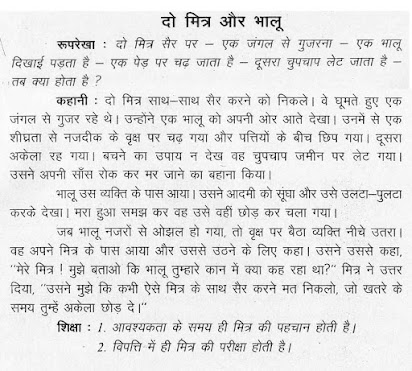 दो मित्र और भालू
रूपरेखा : दो मित्र सैर पर – एक जंगल से गुजरना – एक भालू
दिखाई पड़ता है – एक पेड़ पर चढ़ जाता है – दूसरा चुपचाप लेट जाता है –
तब क्या होता है ?
कहानी : दो मित्र साथ–साथ सैर करने को निकले। वे घूमते हुए एक
जंगल से गुजर रहे थे। उन्होंने एक भालू को अपनी ओर आते देखा। उनमें से एक
शीघ्रता से नजदीक के वृक्ष पर चढ़ गया और पत्तियों के बीच छिप गया। दूसरा
अकेला रह गया। बचने का उपाय न देख वह चुपचाप जमीन पर लेट गया।
उसने अपनी साँस रोक कर मर जाने का बहाना किया।
भालू उस व्यक्ति के पास आया। उसने आदमी को सूंघा और उसे उलटा–पुलटा
करके देखा। मरा हुआ समझ कर वह उसे वहीं छोड़ कर चला गया।
जब भालू नजरों से ओझल हो गया, तो वृक्ष पर बैठा व्यक्ति नीचे उतरा।
वह अपने मित्र के पास आया और उससे उठने के लिए कहा। उसने उससे कहा,
“मेरे मित्र ! मुझे बताओ कि भालू तुम्हारे कान में क्या कह रहा था?” मित्र ने उत्तर
दिया, “उसने मुझे कि कभी ऐसे मित्र के साथ सैर करने मत निकलो, जो खतरे के
समय तुम्हें अकेला छोड़ दे।”
शिक्षा : 1. आवश्यकता के समय ही मित्र की पहचान होती है।
2. विपत्ति में ही मित्र की परीक्षा होती है।